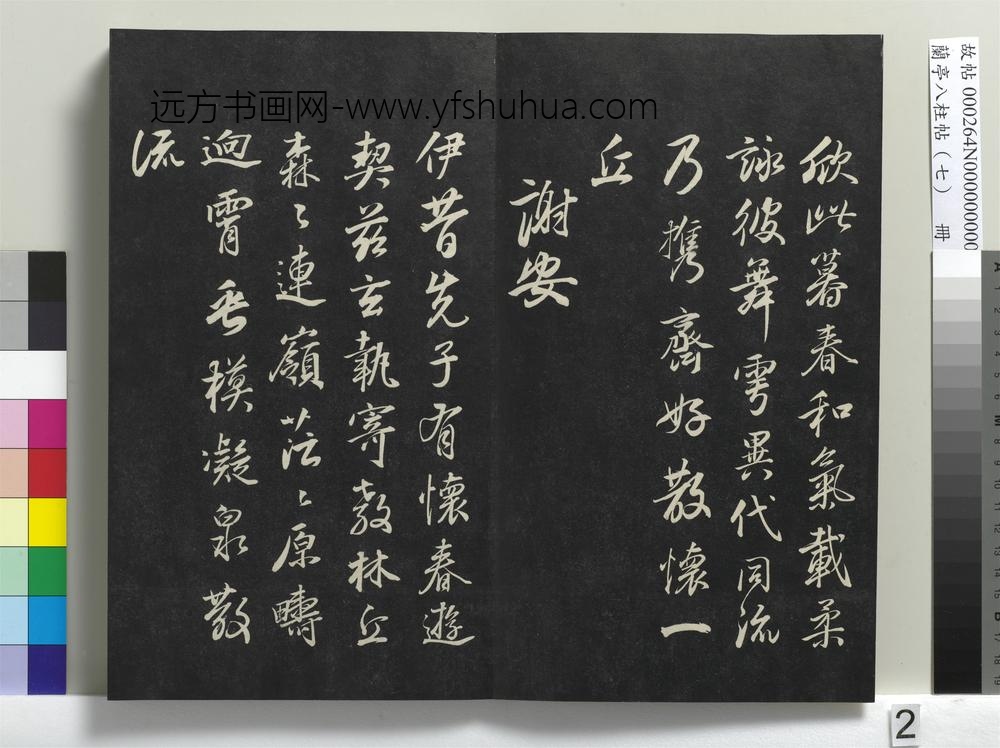 远方书画网-www.yfshuhua.com
欣此暮春和氣載柔
詠彼舞雩異代同流
乃携齊好散懷一
丘
謝安
伊昔先子有懷春遊
契茲言執寄敖林丘
森〻連嶺茫〻原疇
逈霄垂模凝泉散
流
故帖 000264N000000000
蘭亭八柱帖（七） 冊
2